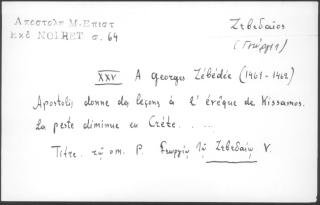 Αποστολη Μ. Επιστ
Εκδ NOIRET σ. 64
Ζεβεδαίος
(Γεώργιος)
XXV A Georges Zébédée (1461-1462)
Apostolis donne des leçons à l'évêque de Kissamos.
La peste diminue en Crète. . ...
Titre. τῷ om. P. Γεωργίῳ τῷ Ζεβεδαίῳ V.